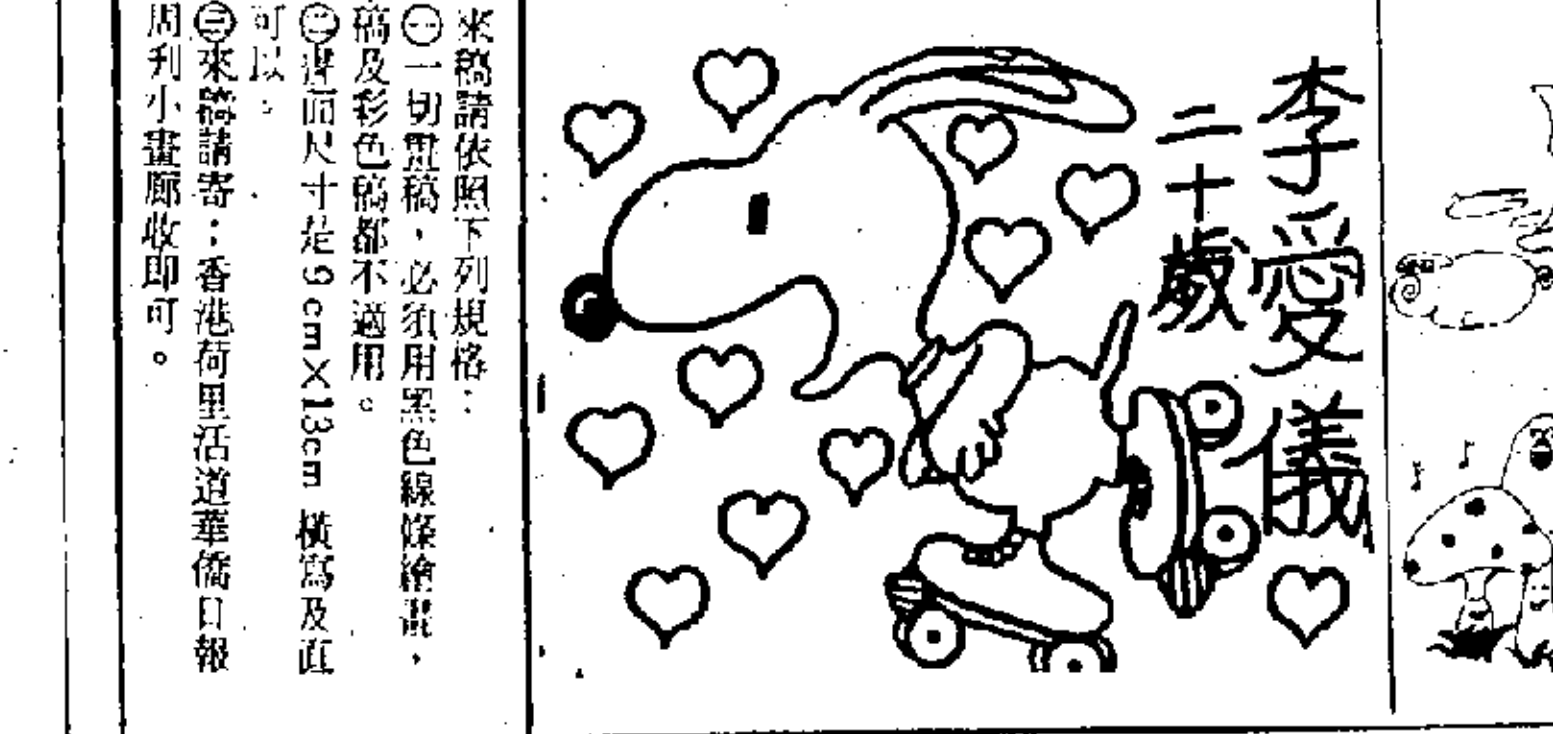 李愛儀
二十歲
來稿請依照下列規格：
㊀一切畫稿，必須用黑色線條繪畫，
稿及彩色稿都不適用。
㊁畫面尺寸是9cm×13cm 橫寫及直
可以。
㊂來稿請寄：香港荷里活道華僑日報
周刋小畫廊收即可。